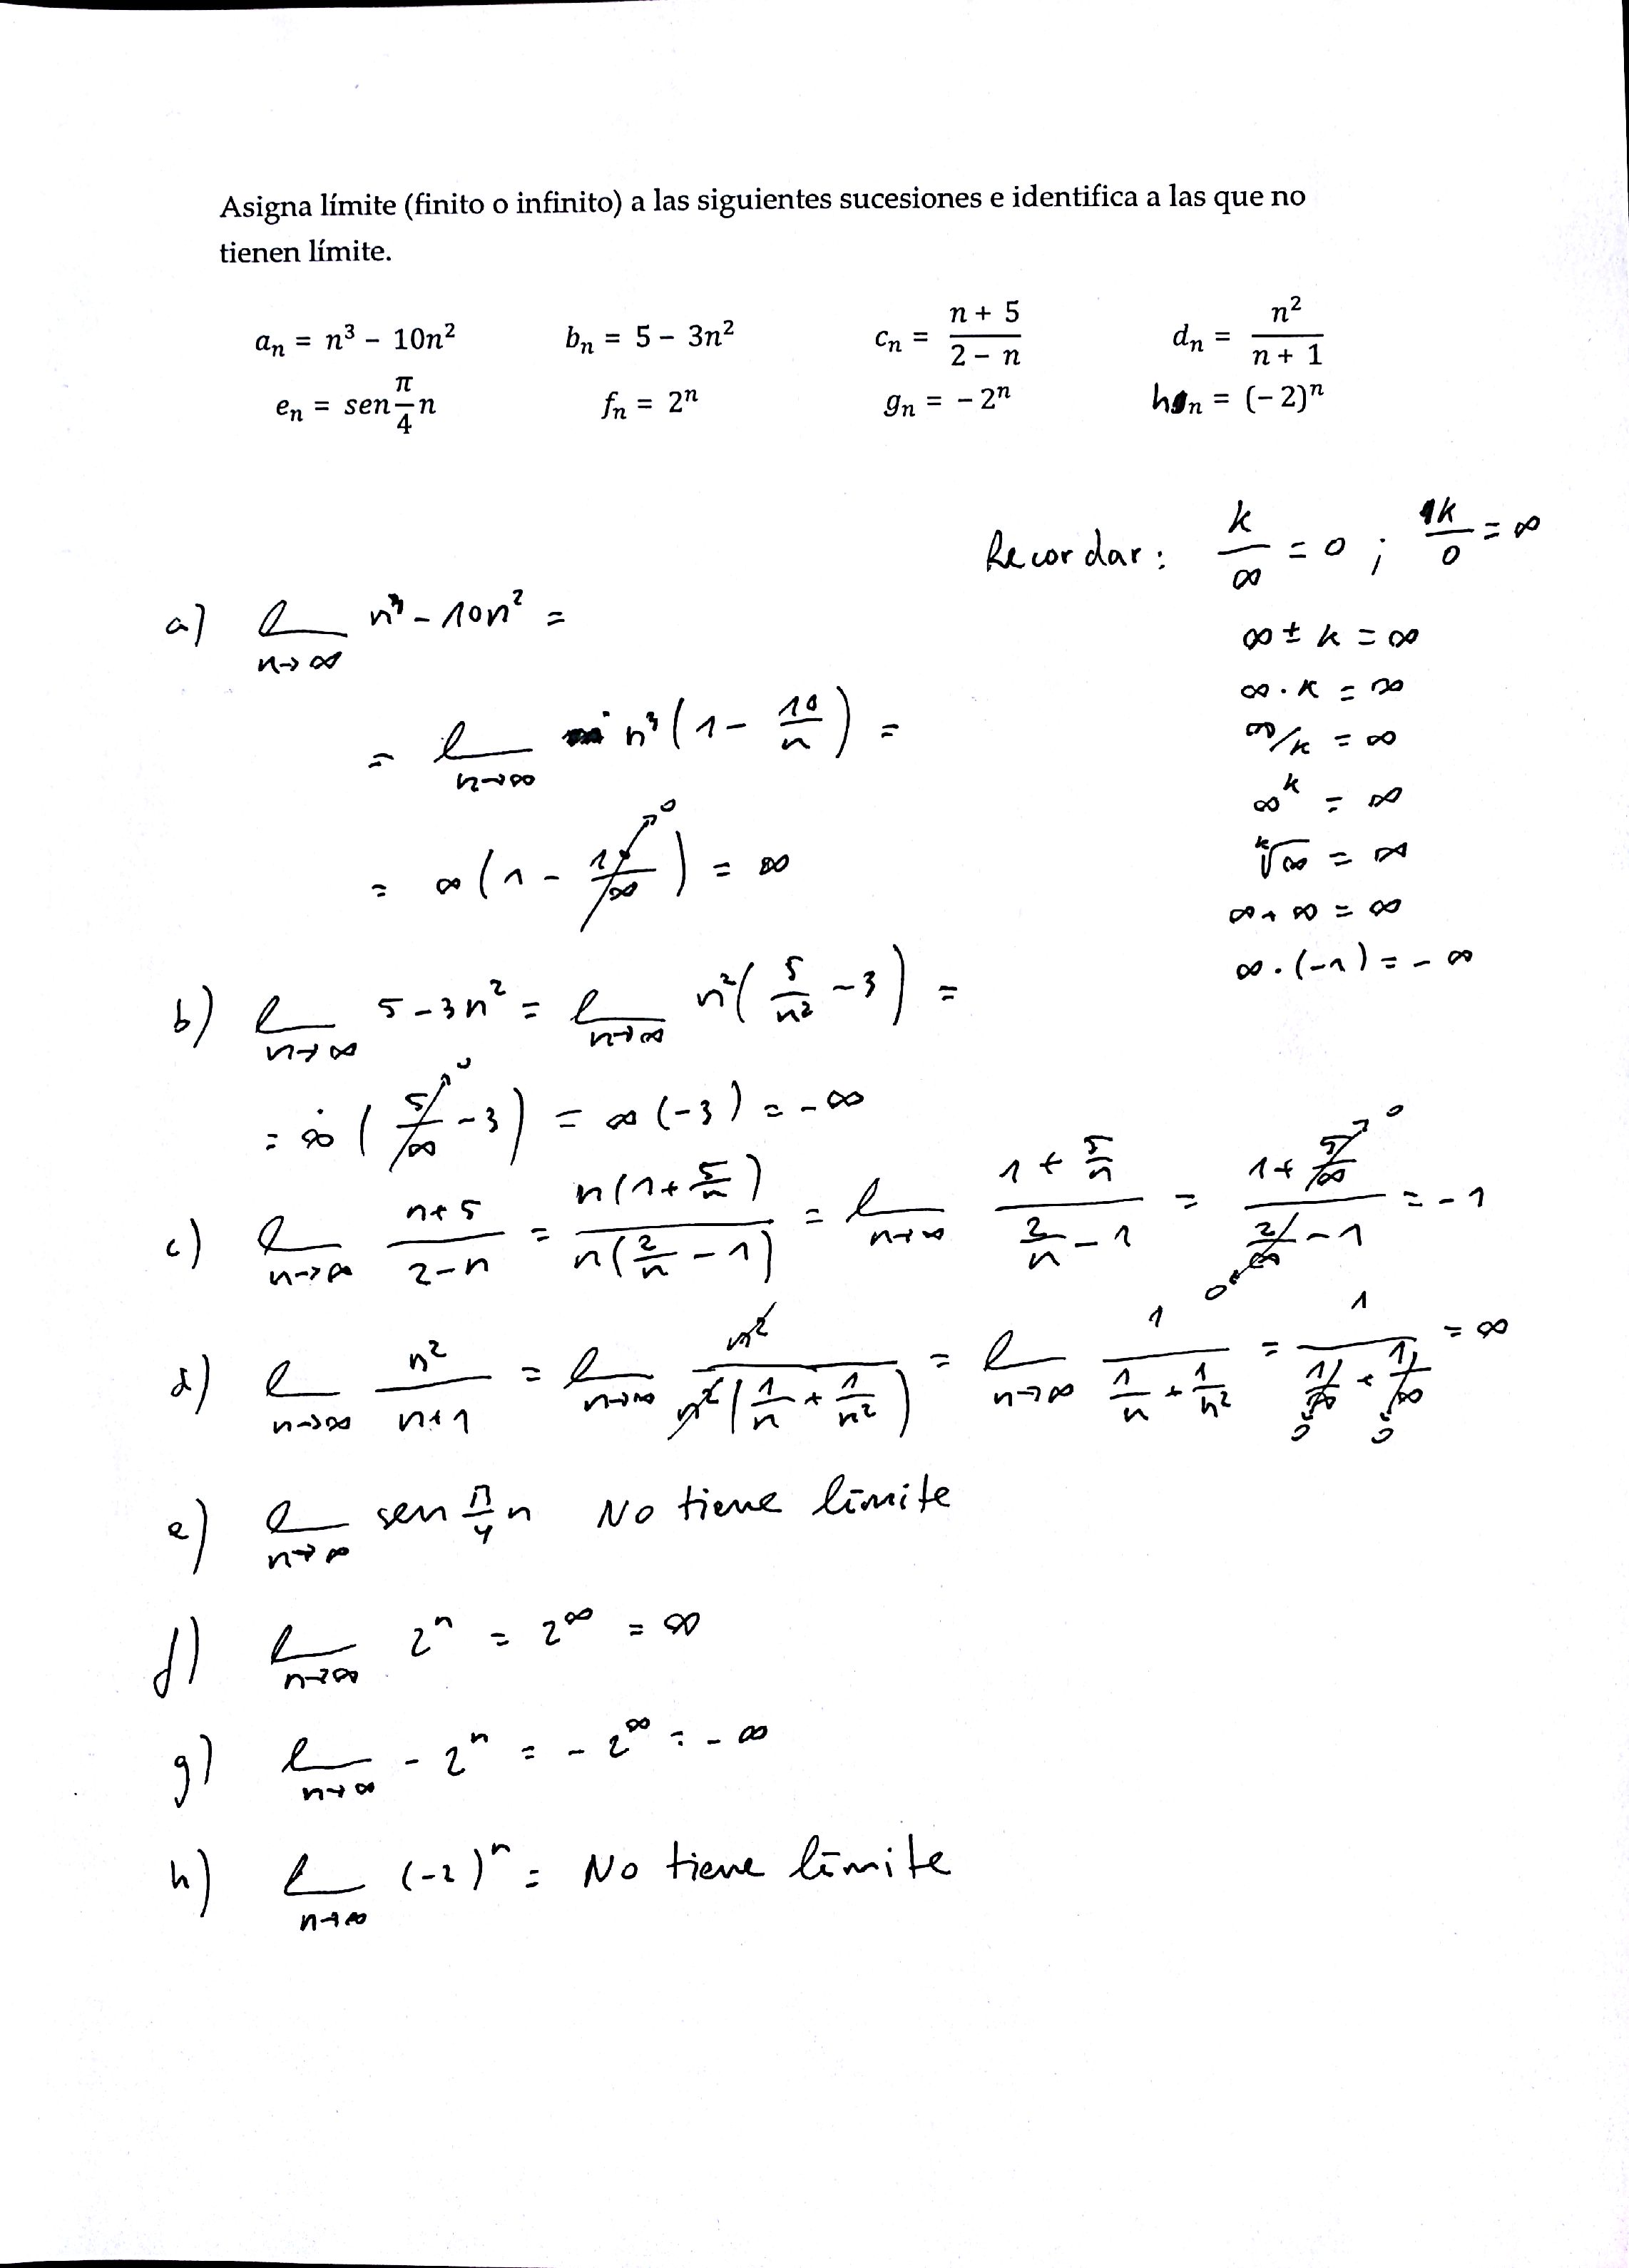 Asigna límite (finito o infinito) a las siguientes sucesiones e identifica a las que no
tienen límite.
aₙ = n³ − 10n²   bₙ = 5 − 3n²   cₙ = (n + 5)/(2 − n)   dₙ = n²/(n + 1)
eₙ = sen π/4 n   fₙ = 2ⁿ   gₙ = − 2ⁿ   hₙ = (− 2)ⁿ
Recordar: k/∞ = 0 ; k/0 = ∞
∞ ± k = ∞
∞ · k = ∞
∞/k = ∞
∞ᵏ = ∞
ᵏ√∞ = ∞
∞ + ∞ = ∞
∞ · (−1) = − ∞
a) l n→∞ n³ − 10n² =
= l n→∞ n³ (1 − 10/n) =
= ∞ (1 − 10/∞ → 0) = ∞
b) l n→∞ 5 − 3n² = l n→∞ n² (5/n² − 3) =
= ∞ (5/∞ → 0 − 3) = ∞ (−3) = − ∞
c) l n→∞ (n+5)/(2−n) = n(1 + 5/n)/n(2/n − 1) = l n→∞ (1 + 5/n)/(2/n − 1) = (1 + 5/∞ → 0)/(2/∞ → 0 − 1) = − 1
d) l n→∞ n²/(n+1) = l n→∞ n²/n²(1/n + 1/n²) = l n→∞ 1/(1/n + 1/n²) = 1/(1/∞ → 0 + 1/∞ → 0) = ∞
e) l n→∞ sen π/4 n No tiene límite
f) l n→∞ 2ⁿ = 2^∞ = ∞
g) l n→∞ − 2ⁿ = − 2^∞ = − ∞
h) l n→∞ (−2)ⁿ = No tiene límite